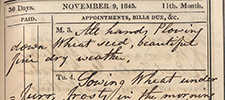 30 Days. NOVEMBER 9, 1845. 11th Month.
PAID. APPOINTMENTS, BILLS DUE, &c.
M. 3. All hands Plowing
down Wheat seed, beautiful
fine dry weather.
Tu. 4. Sowing Wheat under
furro, frosty in the morning